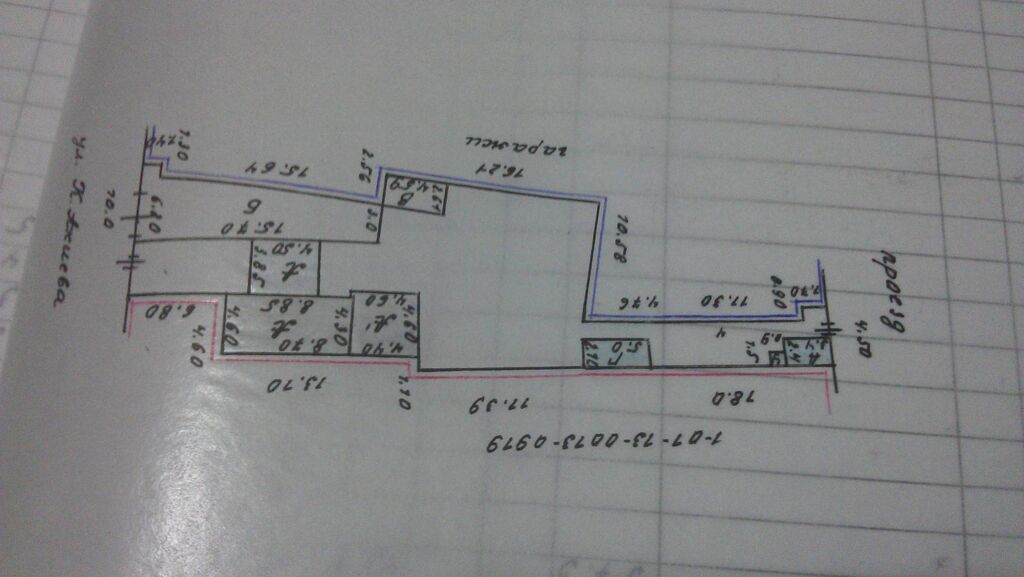 гаражи
16.21
2.56
15.64
1.30
1.40
ул. Х. Ажиева
10.0
6.80
Б
15.70
3.0
В
4.89
2.61
10.58
проезд
4.50
1.70
0.90
11.30
4.76
4
4.50
3.85
6.80
4.60
4.60
8.85
8.70
4.30
4.60
4.60
4.40
13.70
1.10
5.0
2.10
0.9
1.5
2.4
18.0
11.39
1-01-13-0013-0919